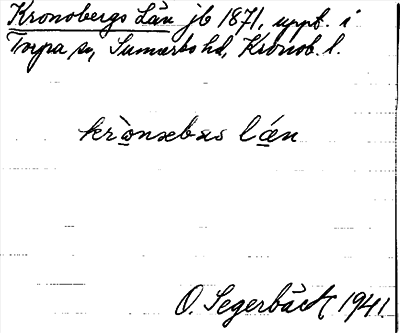 Kronobergs Län jb 1871, uppt. i
Torpa sn, Sunnerbo hd, Kronob. l.
krònæbæs lán
O. Segerbäck 1941.